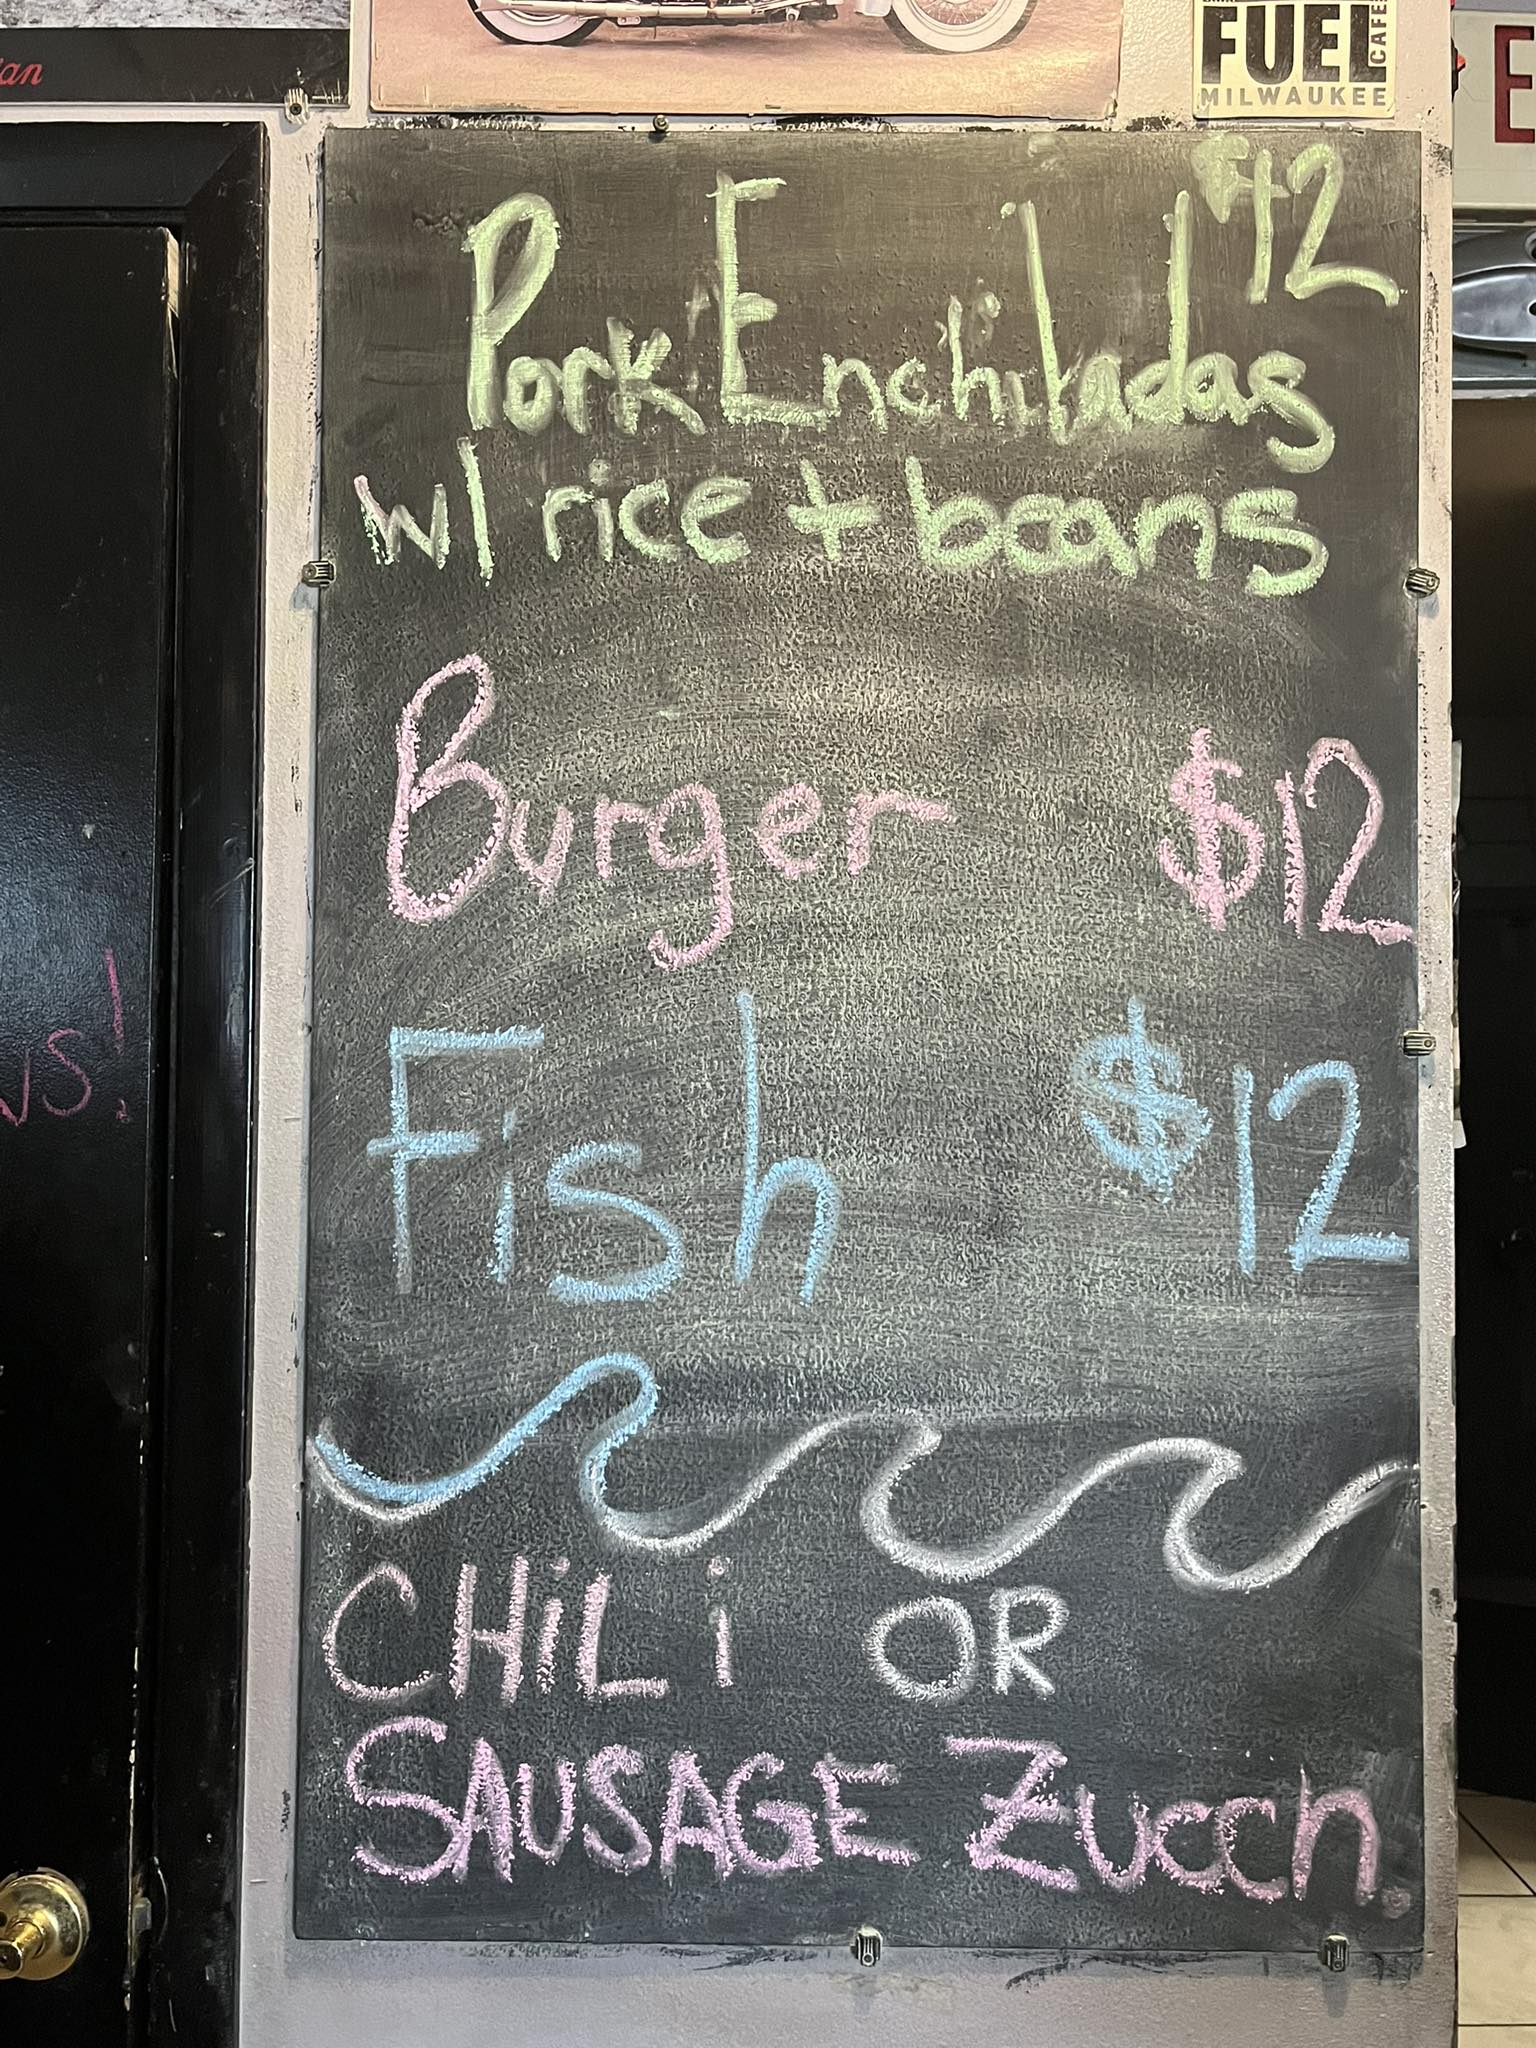 an
FUEL
CAFE
MILWAUKEE
E
$12
Pork Enchiladas
w/ rice + beans
Burger $12
Fish $12
ws!
CHiLi OR
SAUSAGE Zucch.